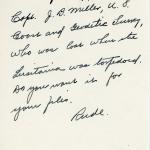 Capt. J. B. Miller, U. S.
Coast and Geodetic Survey,
who was lost when the
Lusitania was torpedoed.
Do you want it for
your files.
Rude.